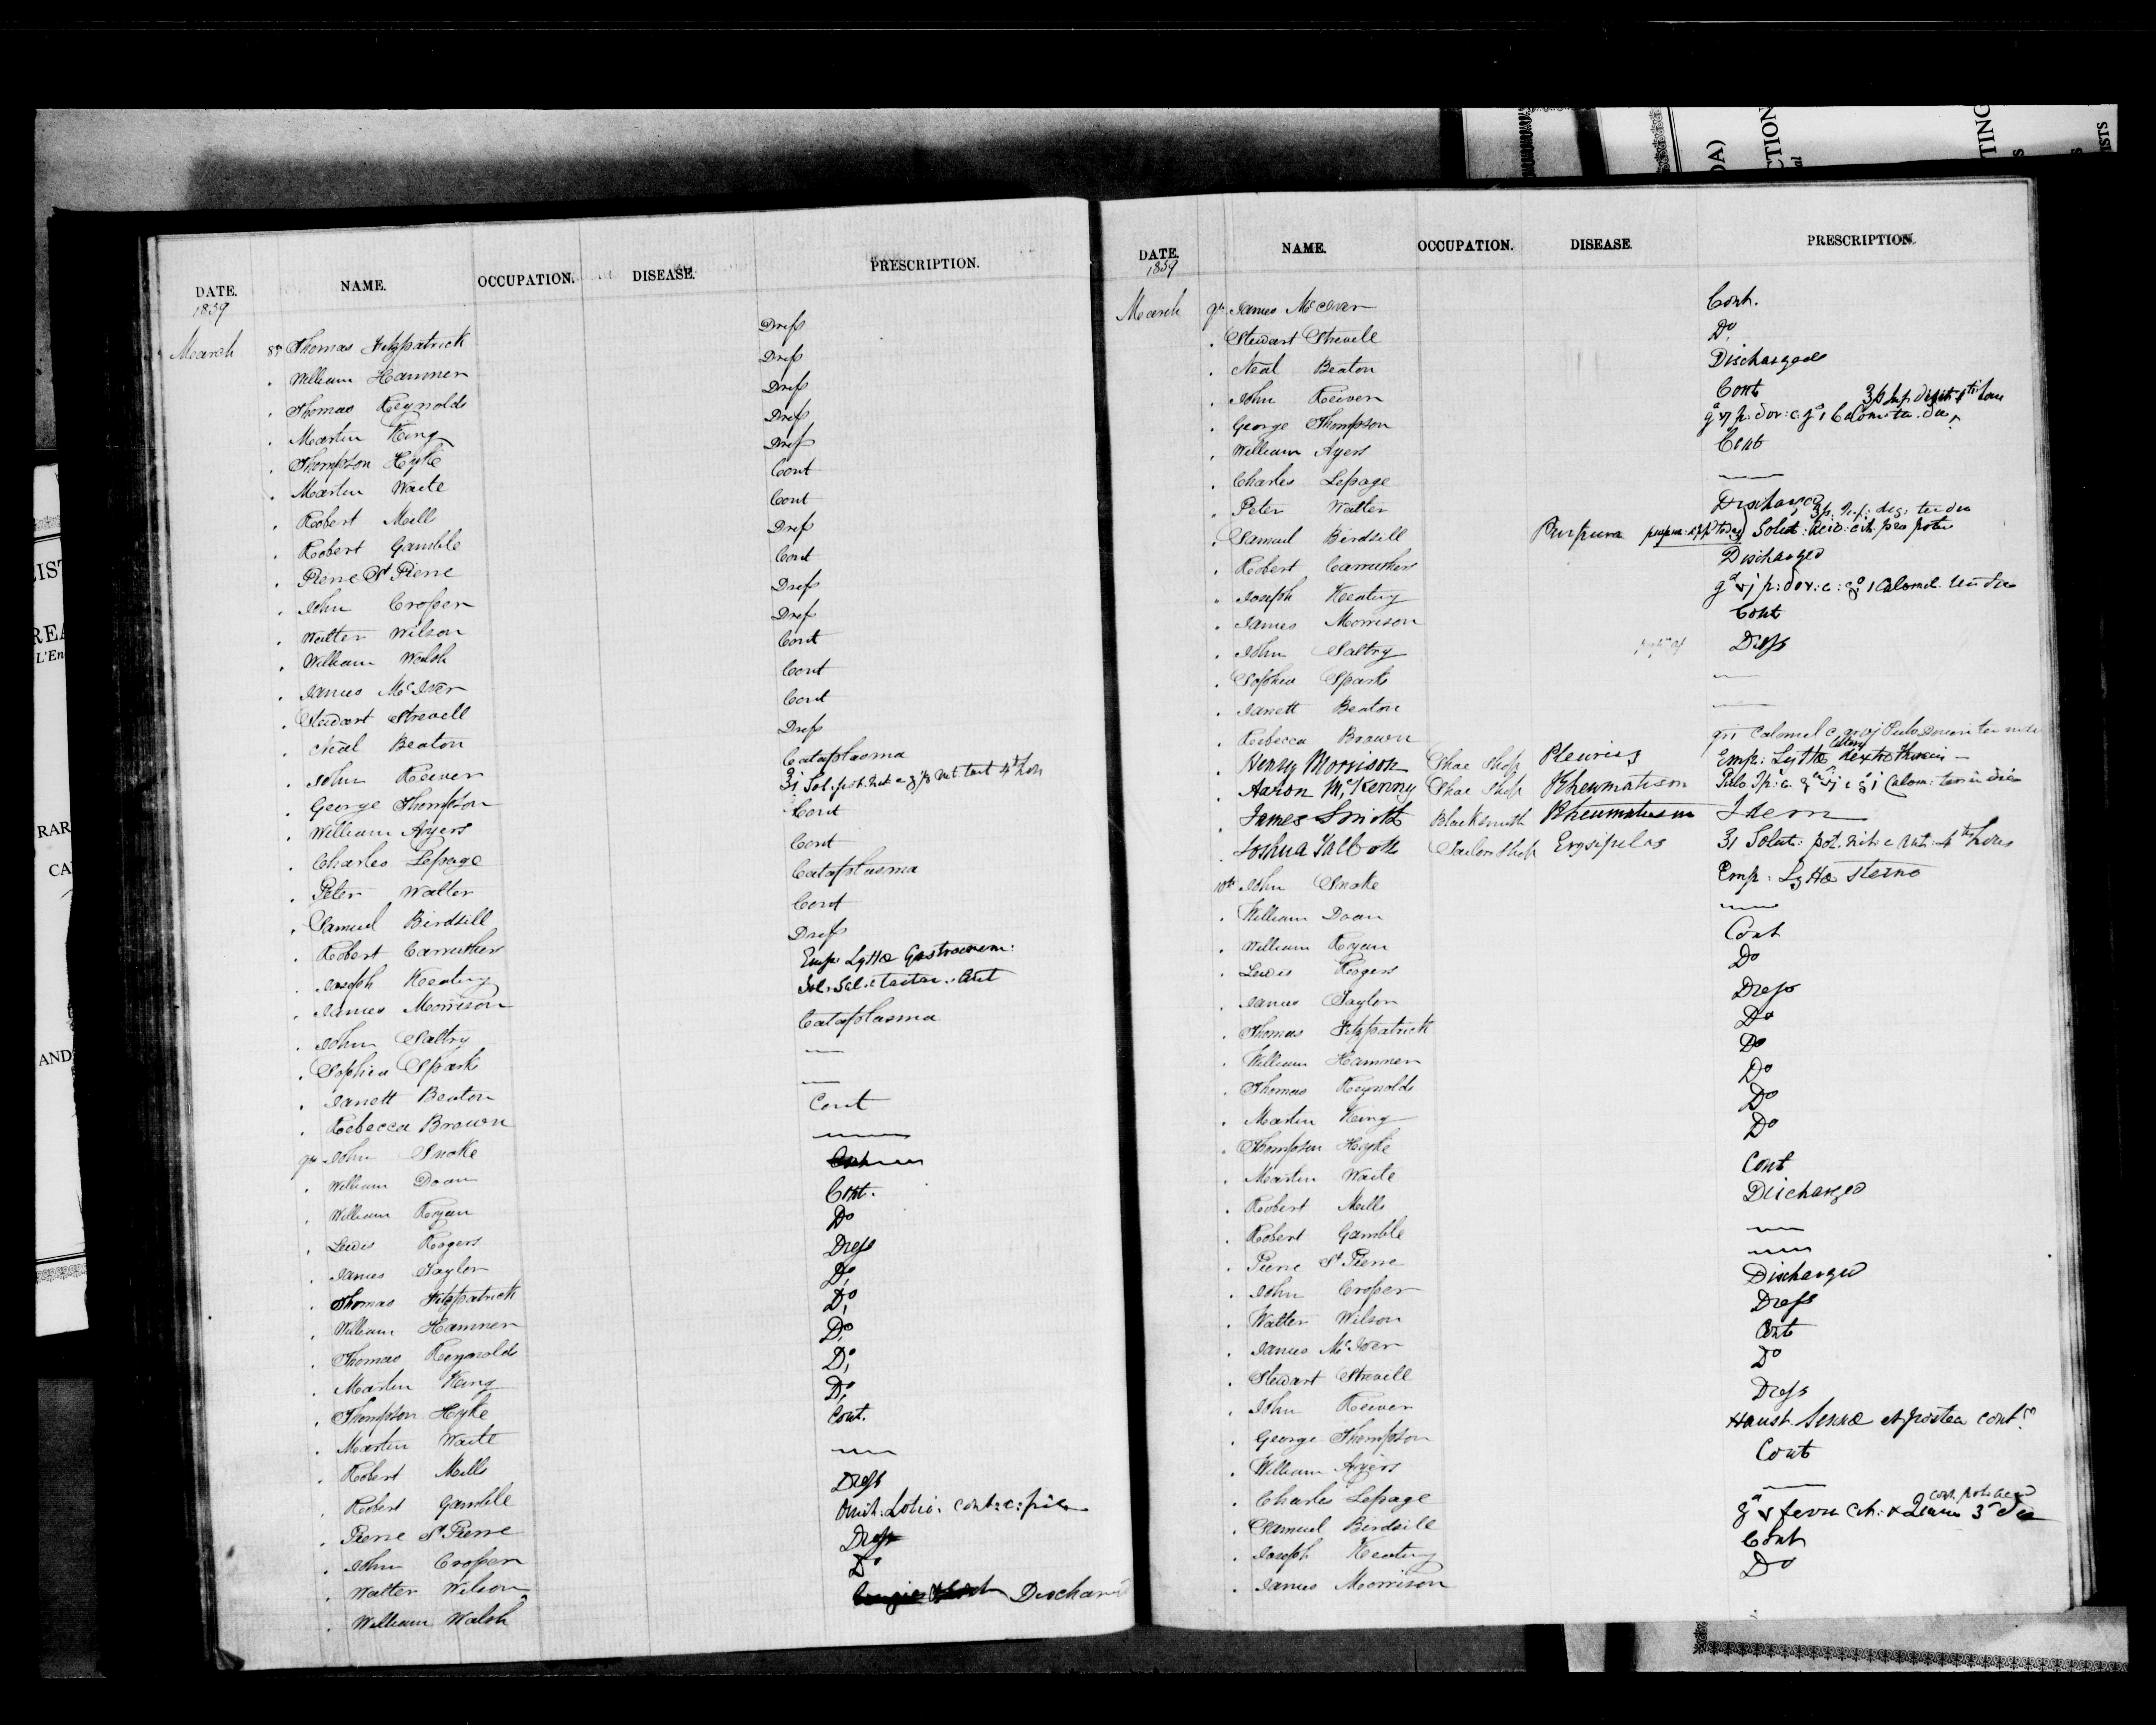 DATE. NAME. OCCUPATION. DISEASE. PRESCRIPTION.
1859
March 8th Thomas Fitzpatrick Dress
. William Hammer Dress
. Thomas Reynolds Dress
. Martin King Dress
. Thompson Hyke Dress
. Martin Waite Cont
. Robert Mills Cont
. Robert Gamble Dress
. Pierre St Pierre Cont
. John Croper Dress
. Walter Wilson Dress
. William Walsh Cont
. James McIver Cont
. Stewart Strevell Cont
. Neal Beaton Dress
. John Reiver Cataplasma
. George Thompson 3i Sol. pot. nit c ant tart 4th hor
. William Ayers Cont
. Charles Lepage Cont
. Peter Walter Cataplasma
. Samuel Birdsill Cont
. Robert Carruthers Dress
. Joseph Keating Emp Lyttæ Gastrocnem.
. James Morrison Sol. Sal. c tartar. Ant
. John Saltry Cataplasma
. Sophia Sparks —
. Janett Beaton —
. Rebecca Brown Cont
9th John Snake —
. William Doan
. William Ryan Cont.
. Lewis Rogers Do
. James Taylor Dress
. Thomas Fitzpatrick Do
. William Hammer Do
. Thomas Reynolds Do
. Martin King Do
. Thompson Hyke Do
. Martin Waite Cont.
. Robert Mills —
. Robert Gamble Dress
. Pierre St Pierre Omit. Lotio. cont. c.
. John Croper Dress
. Walter Wilson Do
. William Walsh Discharged
DATE. NAME. OCCUPATION. DISEASE. PRESCRIPTION.
1859
March 9th James McIver Cont.
. Stewart Strevell Do
. Neal Beaton Discharged
. John Reiver Cont
. George Thompson gr vj p: dov: c gr i Calom ter. die
. William Ayers Cont
. Charles Lepage —
. Peter Walter Discharged
. Samuel Birdsill Purpura Solut: Acid: cit. pro potu
. Robert Carruthers Discharged
. Joseph Keating gr vj p: dov: c: gr i Calomel ter die
. James Morrison Cont
. John Saltry Dress
. Sophia Sparks —
. Janett Beaton —
. Rebecca Brown
. Henry Morrison Shoe Shop Pleurisy Emp: Lyttæ dextro
. Aaron McKenny Shoe Shop Rheumatism Pulv Ip: c. gr vj c gr i Calom: ter in die
. James Smith Blacksmith Rheumatism Idem
. Joshua Talbott Tailor Shop Erysipelas 3i Solut: pot. nit c Ant. 4th hora
10th John Snake Emp. Lyttæ sterno
. William Doan —
. William Ryan Cont
. Lewis Rogers Do
. James Taylor Dress
. Thomas Fitzpatrick Do
. William Hammer Do
. Thomas Reynolds Do
. Martin King Do
. Thompson Hyke Do
. Martin Waite Cont
. Robert Mills Discharged
. Robert Gamble —
. Pierre St Pierre —
. John Croper Discharged
. Walter Wilson Dress
. James McIver Cont
. Stewart Strevell Do
. John Reiver Dress
. George Thompson Haust. Sennæ et postea contd
. William Ayers Cont
. Charles Lepage —
. Samuel Birdsill gr v ferri cit:
. Joseph Keating Cont
. James Morrison Do